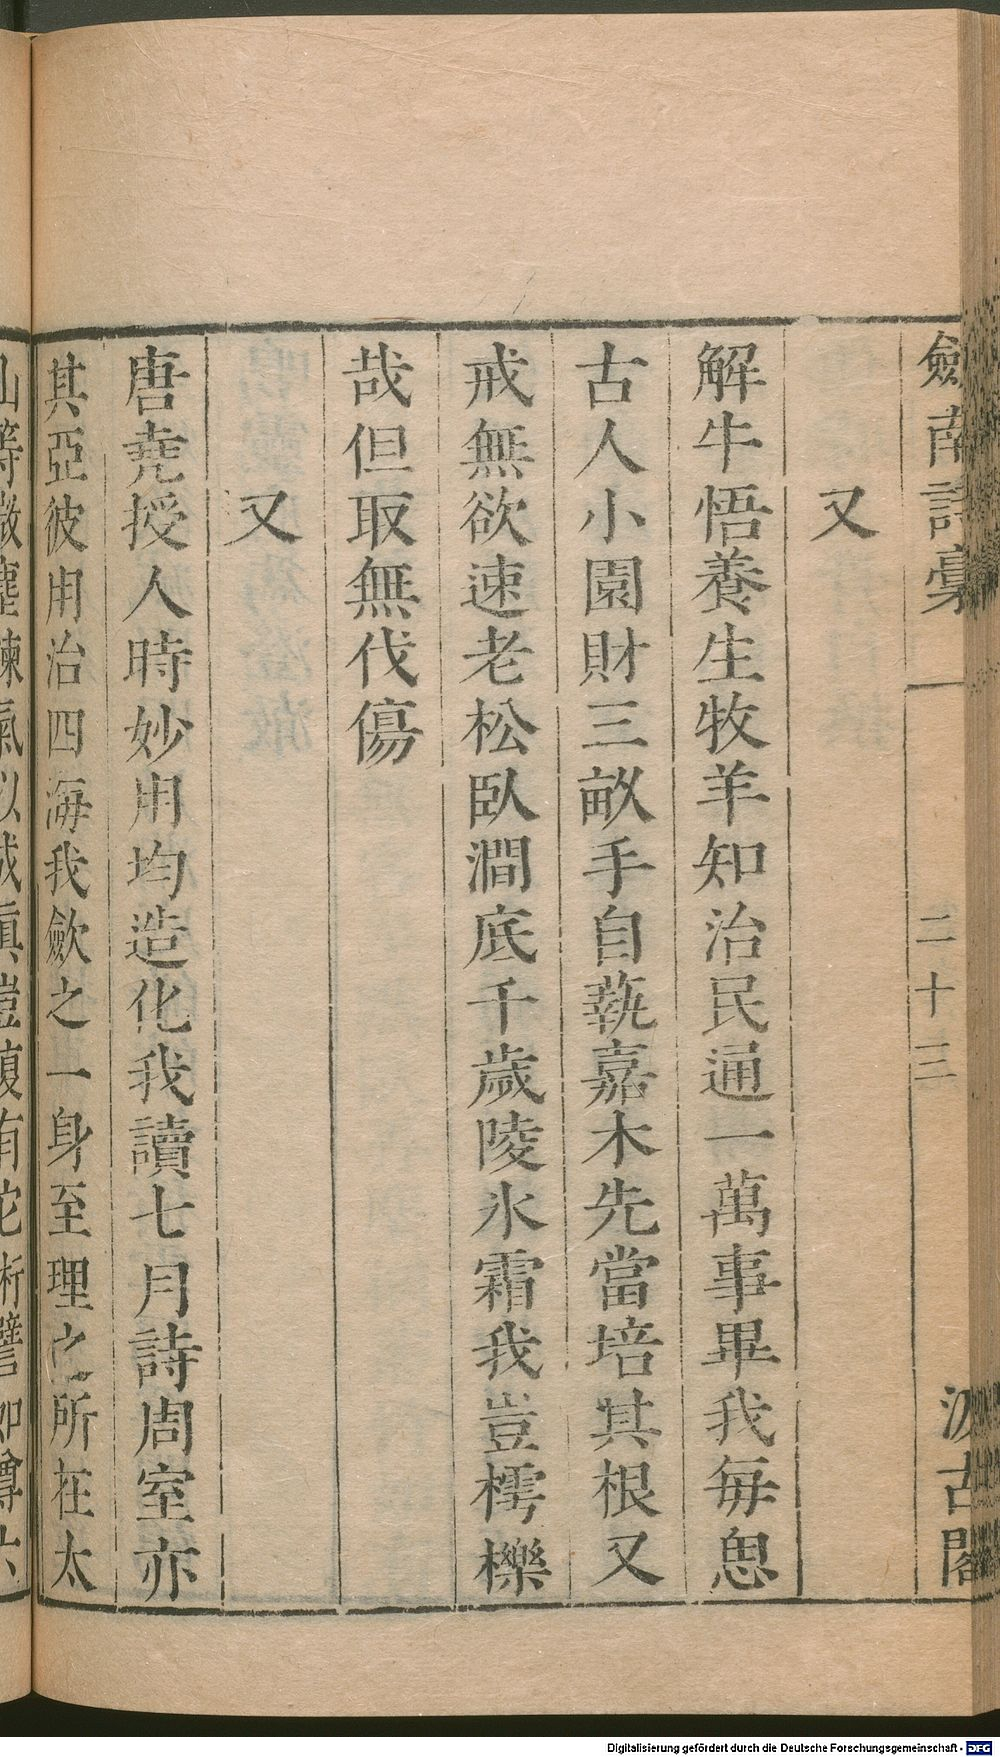 劍南詩稾
二十三
汲古閣
又
解牛悟養生牧羊知治民通一萬事畢我每思
古人小園財三畝手自蓺嘉木先當培其根又
戒無欲速老松臥澗底千歲陵氷霜我豈樗櫟
哉但取無伐傷
又
唐堯授人時妙用均造化我讀七月詩周室亦
其亞彼用治四海我歛之一身至理之所在太
山等微塵鍊氣以成眞豈復有它術譬如導六
Digitalisierung gefördert durch die Deutsche Forschungsgemeinschaft - DFG